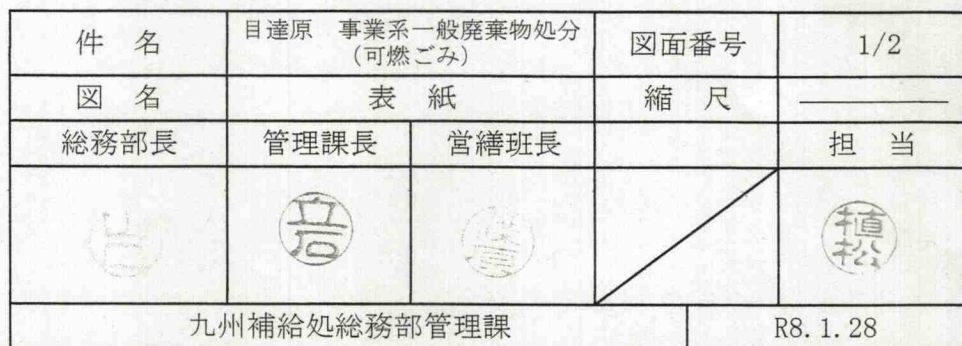 件 名
目達原　事業系一般廃棄物処分
(可燃ごみ)
図面番号
1/2
図 名
表 紙
縮 尺
総務部長
管理課長
営繕班長
担 当
立石
植松
九州補給処総務部管理課
R8.1.28